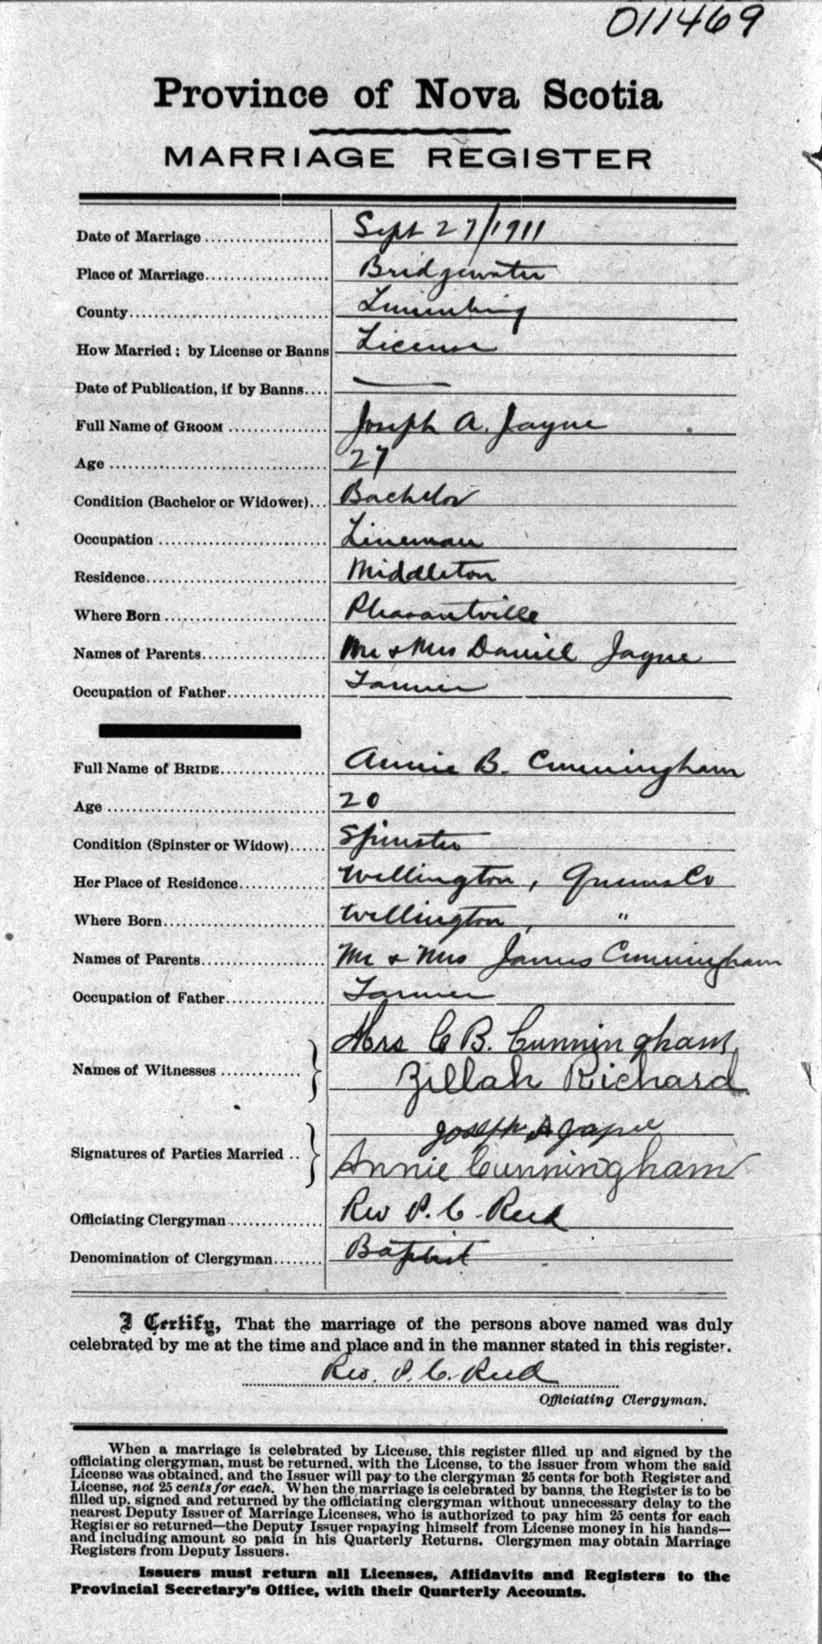 011469
Province of Nova Scotia
MARRIAGE REGISTER
Date of Marriage ........ Sept 27/1911
Place of Marriage ........ Bridgewater
County ........ Lunenburg
How Married: by License or Banns License
Date of Publication, if by Banns.... —
Full Name of GROOM ........ Joseph A. Jayne
Age ........ 27
Condition (Bachelor or Widower)... Bachelor
Occupation ........ Lineman
Residence ........ Middleton
Where Born ........ Pleasantville
Names of Parents ........ Mr & Mrs Daniel Jayne
Occupation of Father ........ Farmer
Full Name of BRIDE ........ Annie B. Cunningham
Age ........ 20
Condition (Spinster or Widow)...... Spinster
Her Place of Residence ........ Wellington, Queens Co
Where Born ........ Wellington, "
Names of Parents ........ Mr & Mrs James Cunningham
Occupation of Father ........ Farmer
Mrs C B. Cunningham
Names of Witnesses ........ Zillah Richard
Joseph A Jayne
Signatures of Parties Married .. Annie Cunningham
Officiating Clergyman ........ Rev P. C. Reed
Denomination of Clergyman ........ Baptist
I Certify, That the marriage of the persons above named was duly
celebrated by me at the time and place and in the manner stated in this register.
Rev. P. C. Reed
Officiating Clergyman.
When a marriage is celebrated by License, this register filled up and signed by the
officiating clergyman, must be returned, with the License, to the issuer from whom the said
License was obtained, and the Issuer will pay to the clergyman 25 cents for both Register and
License, not 25 cents for each. When the marriage is celebrated by banns, the Register is to be
filled up, signed and returned by the officiating clergyman without unnecessary delay to the
nearest Deputy Issuer of Marriage Licenses, who is authorized to pay him 25 cents for each
Register so returned—the Deputy Issuer repaying himself from License money in his hands—
and including amount so paid in his Quarterly Returns. Clergymen may obtain Marriage
Registers from Deputy Issuers.
Issuers must return all Licenses, Affidavits and Registers to the
Provincial Secretary's Office, with their Quarterly Accounts.